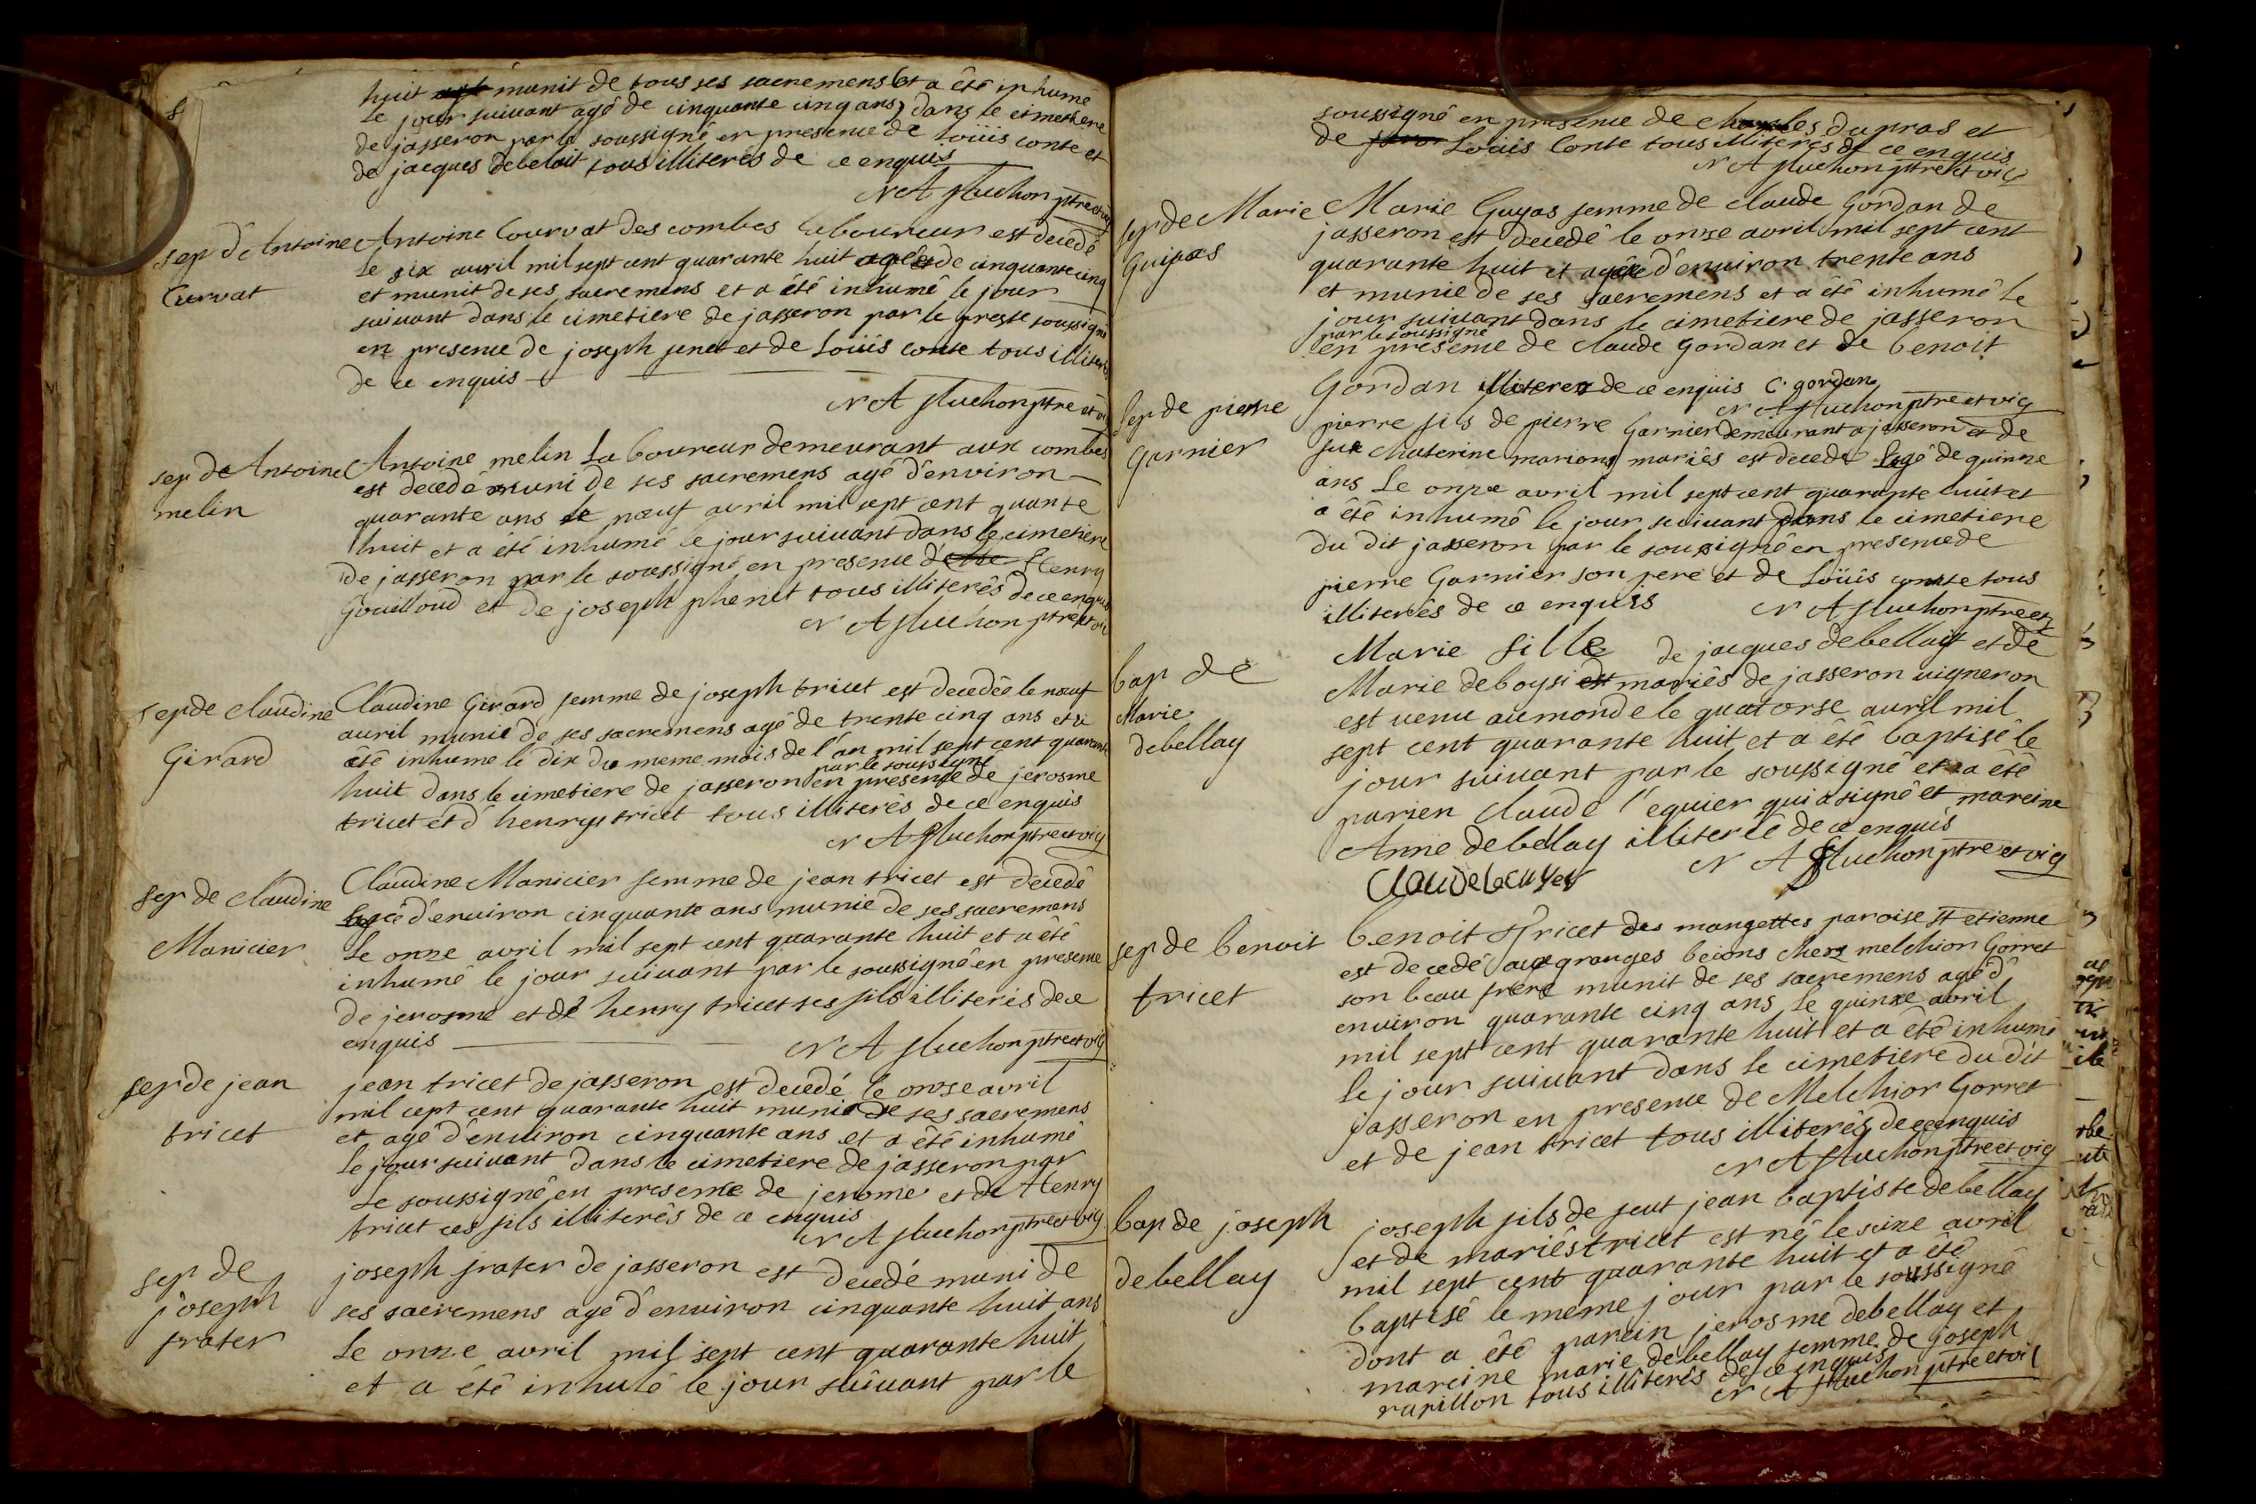 huit munit de tous ses sacremens et a êtê inhumé
le jour suivant agé de cinquante cinq ans dans le cimethere
de jasseron par le soussigné en presence de Loüis conte et
de jacques debelait tous illiterês de ce enquis
N A fluchon ptre et vic
sep d'Antoine
Curvat
Antoine Courvat des combes laboureur est decedé
le six avril mil sept cent quarante huit agé de cinquante cinq
et munit de ses sacremens et a été inhumé le jour
suivant dans le cimetiere de jasseron par le prestre soussigné
en presence de joseph fenet et de Loüis conte tous illiterés
de ce enquis
N A fluchon ptre et vic
sep de Antoine
melin
Antoine melin Laboureur demeurant aux combes
est decedé muni de ses sacremens agé d'environ
quarante ans le nœuf avril mil sept cent quante
huit et a êté inhumé le jour suivant dans le cimetiere
de jasseron par le soussigné en presence de Henry
Gouilloud et de joseph phenet tous illiterês de ce enquis
N A fluchon ptre et vic
sep de claudine
Girard
Claudine Girard femme de joseph tricet est decedée le nœuf
avril munie de ses sacremens agé de trente cinq ans et a
été inhume le dix du meme mois de l'an mil sept cent quarante
par le soussigné
huit dans le cimetiere de jasseron en presence de jerosme
tricet et d'henry tricet tous illiterês de ce enquis
N A fluchon ptre et vic
sep de claudine
Manicier
Claudine Manicier femme de jean tricet est decedê
agé d'environ cinquante ans munie de ses sacremens
Le onze avril mil sept cent quarante huit et a été
inhumé le jour suivant par le soussigné en presence
de jerosme et de henry tricet ses fils illiterés de ce
enquis
N A fluchon ptre et vic
sep de jean
tricet
jean tricet de jasseron est decedé le onze avril
mil cept cent quarante huit munie de ses sacremens
et agé d'environ cinquante ans et a été inhumé
le jour suivant dans le cimetiere de jasseron par
le soussigné en presence de jerome et de Henry
tricet ces fils illiterês de ce enquis
N A fluchon ptre et vic
sep de
joseph
frater
joseph frater de jasseron est decedé muni de
ses sacremens agé d'environ cinquante huit ans
Le onze avril mil sept cent quarante huit
et a été inhulé le jour suivant par le
soussigné en presence de charles dupras et
de Louis Conte tous illiterés de ce enquis
N A fluchon ptre et vic
sep de Marie
Guipas
Marie Guyas femme de claude Gordan de
jasseron est decedé le onze avril mil sept cent
quarante huit et agée d'environ trente ans
et munie de ses sacremens et a êtê inhumé le
jour suivant dans le cimetiere de jasseron
par le soussigné
en présence de claude Gordan et de benoit
Gordan illiteres de ce enquis C. gordan
N A fluchon ptre et vic
sep de pierre
Garnier
pierre fils de pierre Garnier demeurant a jasseron et de
fue chaterine marion mariés est decedé agé de quinze
ans Le onze avril mil sept cent quarante huit et
a êté inhumê le jour suivant dans le cimetiere
du dit jasseron par le soussigné en presence de
pierre Garnier son pere et de Loüis conte tous
illiterês de ce enquis N A fluchon ptre et
bap de
Marie
debellay
Marie fille de jacques debellay et de
Marie deboysi mariês de jasseron vigneron
est venu au monde le quatorse avril mil
sept cent quarante huit et a êté baptisé le
jour suivant par le soussigné et a êtê
parien Claude l'equier qui a signé et mareine
Anne debelay illiterée de ce enquis
N A fluchon ptre et vic
Claude lecuyer
sep de benoit
tricet
benoit Tricet des mangettes paroise st etienne
est decedé aux granges becons chez melchion Gorret
son beau frere munit de ses sacremens agé d'
environ quarante cinq ans le quinze avril
mil sept cent quarante huit et a êtê inhumé
le jour suivant dans le cimetiere du dit
jasseron en presence de Melchior Gorret
et de jean tricet tous illiterês de ce enquis
N A fluchon ptre et vic
bap de joseph
debellay
joseph fils de feut jean baptiste debellay
et de mariês tricet est né le seize avril
mil sept cent quarante huit et a été
baptisé le meme jour par le soussigné
dont a êtê parein jerosme debellay et
mareine marie debellay femme de joseph
rapillon tous illiterês de ce enquis
N A fluchon ptre et vic